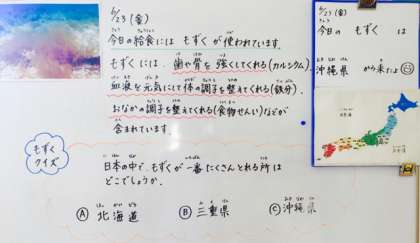 6/23 (金)
今日の給食には もずく が 使われています。
もずく には、歯や骨を強くしてくれる(カルシウム)、
血液を元気にして体の調子を整えてくれる(鉄分)、
おなかの調子を整えてくれる(食物せんい)などが
含まれています。
もずく
クイズ
日本の中で、もずくが一番たくさんとれる所は
どこでしょうか。
Ⓐ 北海道 Ⓑ 三重県 Ⓒ 沖縄県
6/23 (金)
今日の もずく は
沖縄県 から来たよ